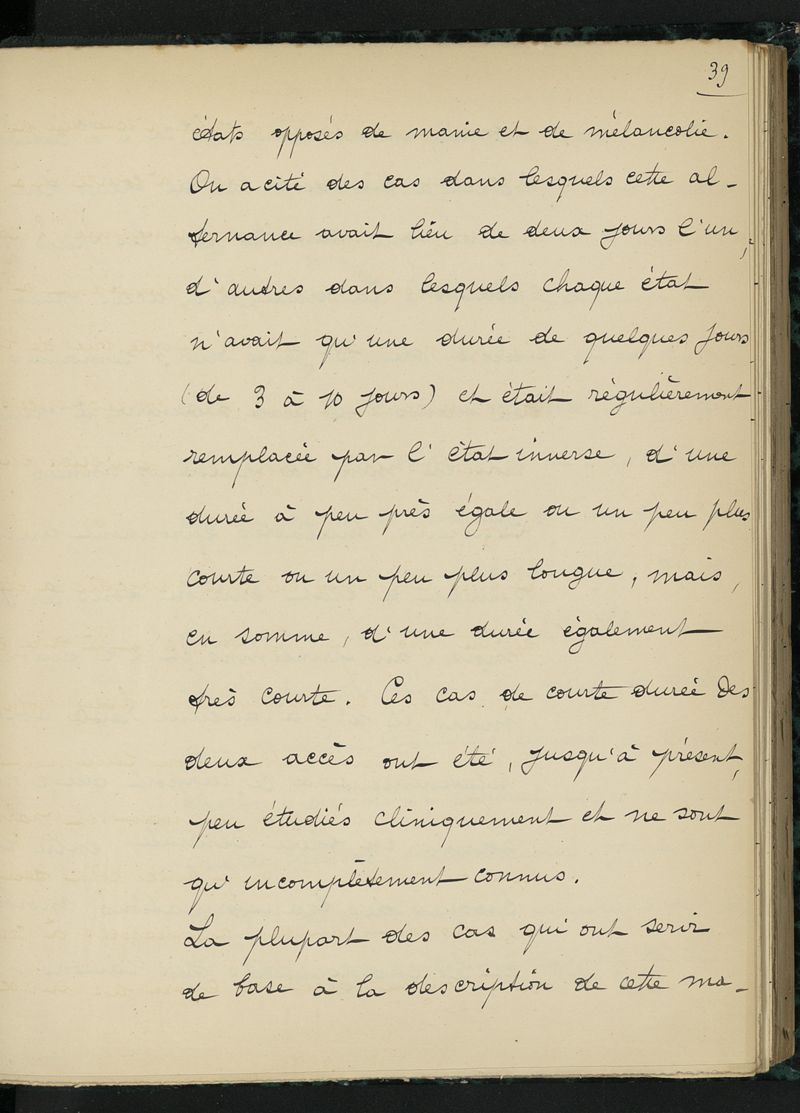 39
états opposés de manie et de mélancolie.
On a cité des cas dans lesquels cette al-
ternance avait lieu de deux jours l'un,
d'autres dans lesquels chaque état
n'avait qu'une durée de quelques jours
(de 3 à 10 jours) et était régulièrement
remplacée par l'état inverse, d'une
durée à peu près égale ou un peu plus
courte ou un peu plus longue, mais,
en somme, d'une durée également
très courte. Ces cas de courte durée des
deux accès ont été, jusqu'à présent,
peu étudiés cliniquement et ne sont
qu'incomplètement connus.
La plupart des cas qui ont servi
de base à la description de cette ma-